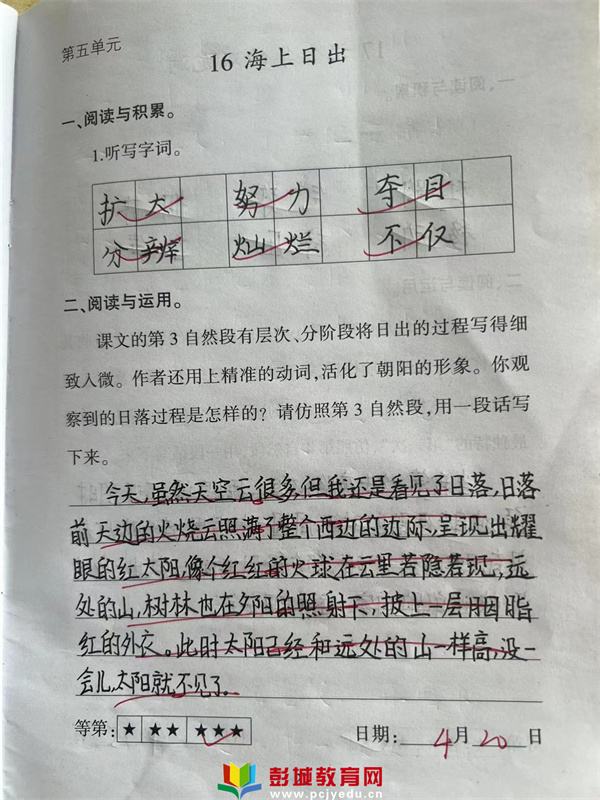 第五单元
16 海上日出
一、阅读与积累。
1.听写字词。
扩大 努力 夺目
分辨 灿烂 不仅
二、阅读与运用。
课文的第3自然段有层次、分阶段将日出的过程写得细
致入微。作者还用上精准的动词,活化了朝阳的形象。你观
察到的日落过程是怎样的？请仿照第3自然段,用一段话写
下来。
今天,虽然天空云很多,但我还是看见了日落,日落
前天边的火烧云照满了整个西边的边际,呈现出耀
眼的红太阳,像个红红的火球在云里若隐若现,远
处的山,树林也在夕阳的照射下,披上一层胭脂
红的外衣。此时太阳已经和远处的山一样高,没一
会儿,太阳就不见了。
等第: ★ ★★ ★★★ 日期: 4月20日
彭城教育网
www.pcjyedu.cn